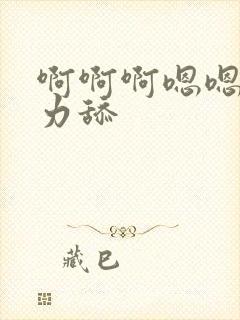 啊啊啊嗯嗯
力舔
藏巴